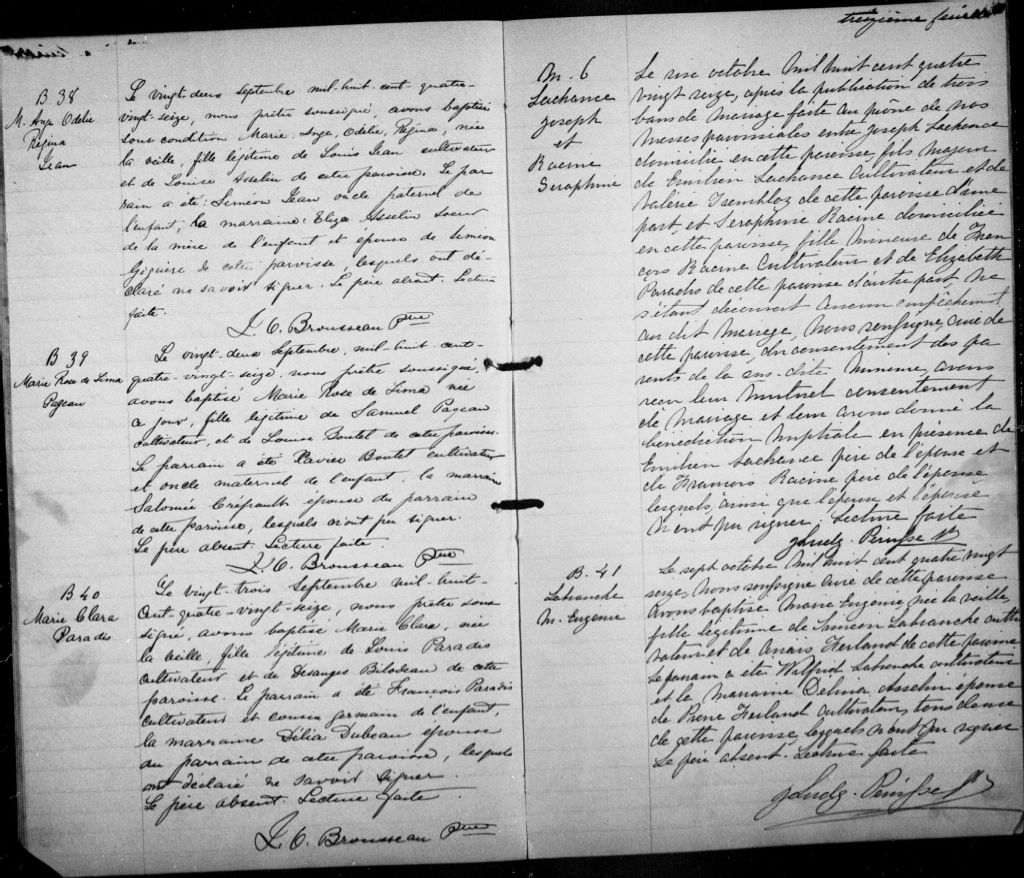 B 38
M. Ange Odelie
Régina
Jean
Le vingt-deux septembre mil-huit-cent-quatre-
vingt-seize, nous prêtre soussigné, avons baptisé
sous condition Marie, Ange, Odélie, Régina, née
la veille, fille légitime de Louis Jean cultivateur
et de Louise Asselin de cette paroisse. Le par
rain a été: Siméon Jean oncle paternel de
l'enfant; la marraine: Eliza Asselin soeur
de la mère de l'enfant et épouse de Siméon
Giguère de cette paroisse, lesquels ont dé-
claré ne savoir signer. Le père absent. Lecture
faite.
L. O. Brousseau Ptre
B 39
Marie Rose de Lima
Pageau
Le vingt-deux Septembre, mil-huit-cent-
quatre-vingt-seize, nous prêtre soussigné,
avons baptisé Marie Rose de Lima née
ce jour, fille légitime de Samuel Pageau
cultivateur, et de Louise Boutet de cette paroisse.
Le parrain a été Xavier Boutet cultivateur
et oncle maternel de l'enfant, la marraine
Salomée Crépault épouse du parrain
de cette paroisse, lesquels n'ont pu signer.
Le père absent. Lecture faite.
L. O. Brousseau Ptre
B 40
Marie Clara
Paradis
Le vingt-trois Septembre mil-huit-
Cent-quatre-vingt-seize, nous prêtre sous
signé, avons baptisé Marie Clara, née
la veille, fille légitime de Louis Paradis
Cultivateur et de Desanges Bilodeau de cette
paroisse. Le parrain a été François Paradis
Cultivateur et cousin germain de l'enfant,
la marraine Délia Dubeau épouse
du parrain de cette paroisse, lesquels
ont déclaré ne savoir signer.
Le père absent. Lecture faite.
L. O. Brousseau Ptre
treizième feuillet
M. 6
Lachance
Joseph
et
Racine
Seraphine
Le six octobre Mil huit cent quatre
vingt seize, après la publication de trois
bans de Mariage faite au prône de nos
Messes paroissiales entre Joseph Lachance
domicilié en cette paroisse fils Majeur
de Emilien Lachance Cultivateur et de
Valérie Tremblay de cette paroisse d'une
part, et Seraphine Racine domiciliée
en cette paroisse, fille Mineure de Fran
cois Racine Cultivateur et de Elizabeth
Paradis de cette paroisse d'autre part, ne
s'étant découvert aucun empêchement
au dit Mariage, Nous soussigné, curé de
cette paroisse, du consentement des pa
rents de la sus-dite Mineure, avons
reçu leur Mutuel consentement
de Mariage et leur avons donné la
bénédiction Nuptiale en présence de
Emilien Lachance père de l'époux et
de Francois Racine père de l'épouse
lesquels, ainsi que l'époux et l'épouse
N'ont pu signer. Lecture faite
J Ludg. Perusse Ptr
B. 41
Labranche
M. Eugenie
Le sept octobre Mil huit cent quatre vingt
seize, Nous soussigné curé de cette paroisse
Avons baptisé Marie Eugenie née la veille,
fille légitime de Simeon Labranche culti
vateur et de Anaïs Ferland de cette paroisse
Le parrain a été Wilfrid Labranche cultivateur
et la Marraine Delina Asselin épouse
de Pierre Ferland cultivateur, tous deux
de cette paroisse lesquels n'ont pu signer
Le père absent. Lecture faite
J Ludg. Perusse Ptr